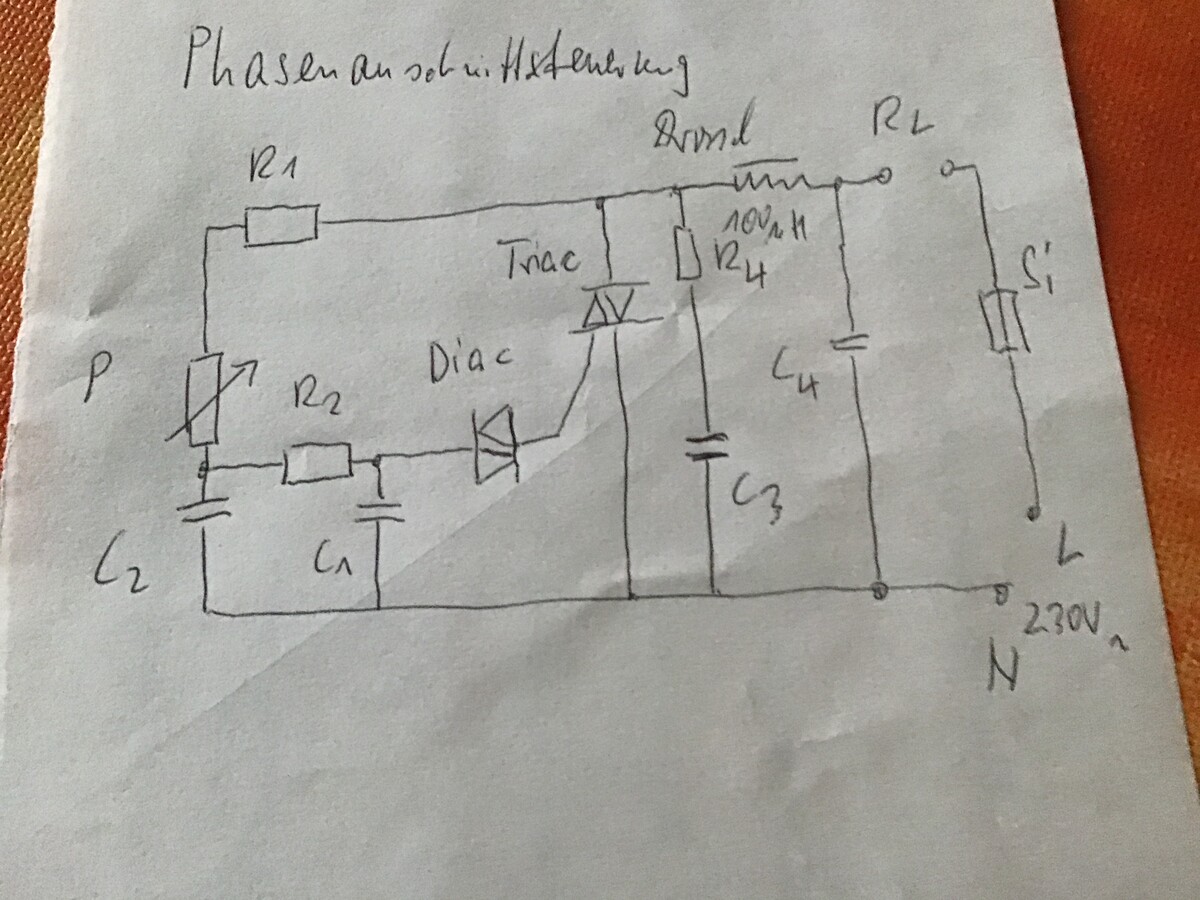 Phasenanschnittsteuerung
Drossel
RL
R1
100µH
Triac
R4
Si
Diac
P
R2
C4
C3
C2
C1
L
230V~
N